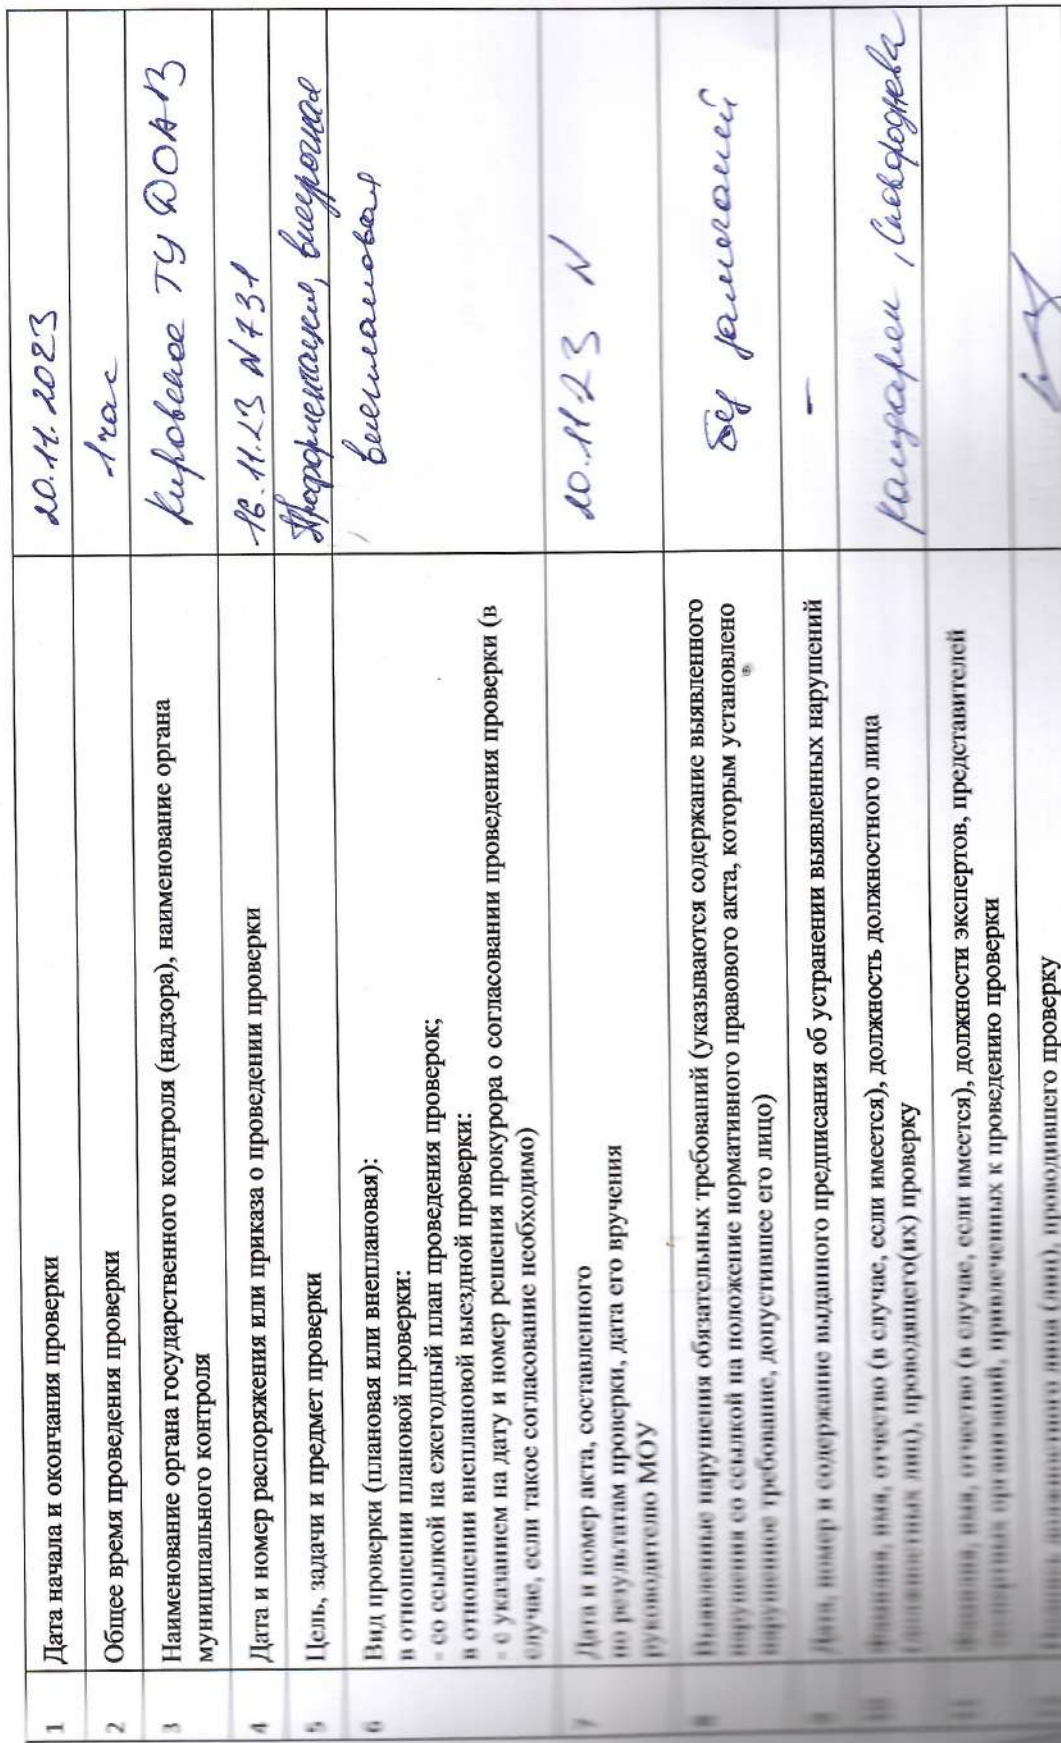 1 Дата начала и окончания проверки 20.11.2023
2 Общее время проведения проверки 1 час
3 Наименование органа государственного контроля (надзора), наименование органа
муниципального контроля Кировское ТУ ДОАВ
4 Дата и номер распоряжения или приказа о проведении проверки 16.11.23 N 731
5 Цель, задачи и предмет проверки Профориентация, внеурочная
6 Вид проверки (плановая или внеплановая): внеплановая
в отношении плановой проверки:
- со ссылкой на ежегодный план проведения проверок;
в отношении внеплановой выездной проверки:
- с указанием на дату и номер решения прокурора о согласовании проведения проверки (в
случае, если такое согласование необходимо)
7 Дата и номер акта, составленного 20.11.23 N
по результатам проверки, дата его вручения
руководителю МОУ
8 Выявленные нарушения обязательных требований (указываются содержание выявленного
нарушения со ссылкой на положение нормативного правового акта, которым установлено
нарушенное требование, допустившее его лицо) без замечаний
9 Дата, номер и содержание выданного предписания об устранении выявленных нарушений –
10 Фамилия, имя, отчество (в случае, если имеется), должность должностного лица
(должностных лиц), проводящего(их) проверку
11 Фамилия, имя, отчество (в случае, если имеется), должности экспертов, представителей
экспертных организаций, привлеченных к проведению проверки
должностного лица (лиц), проводившего проверку